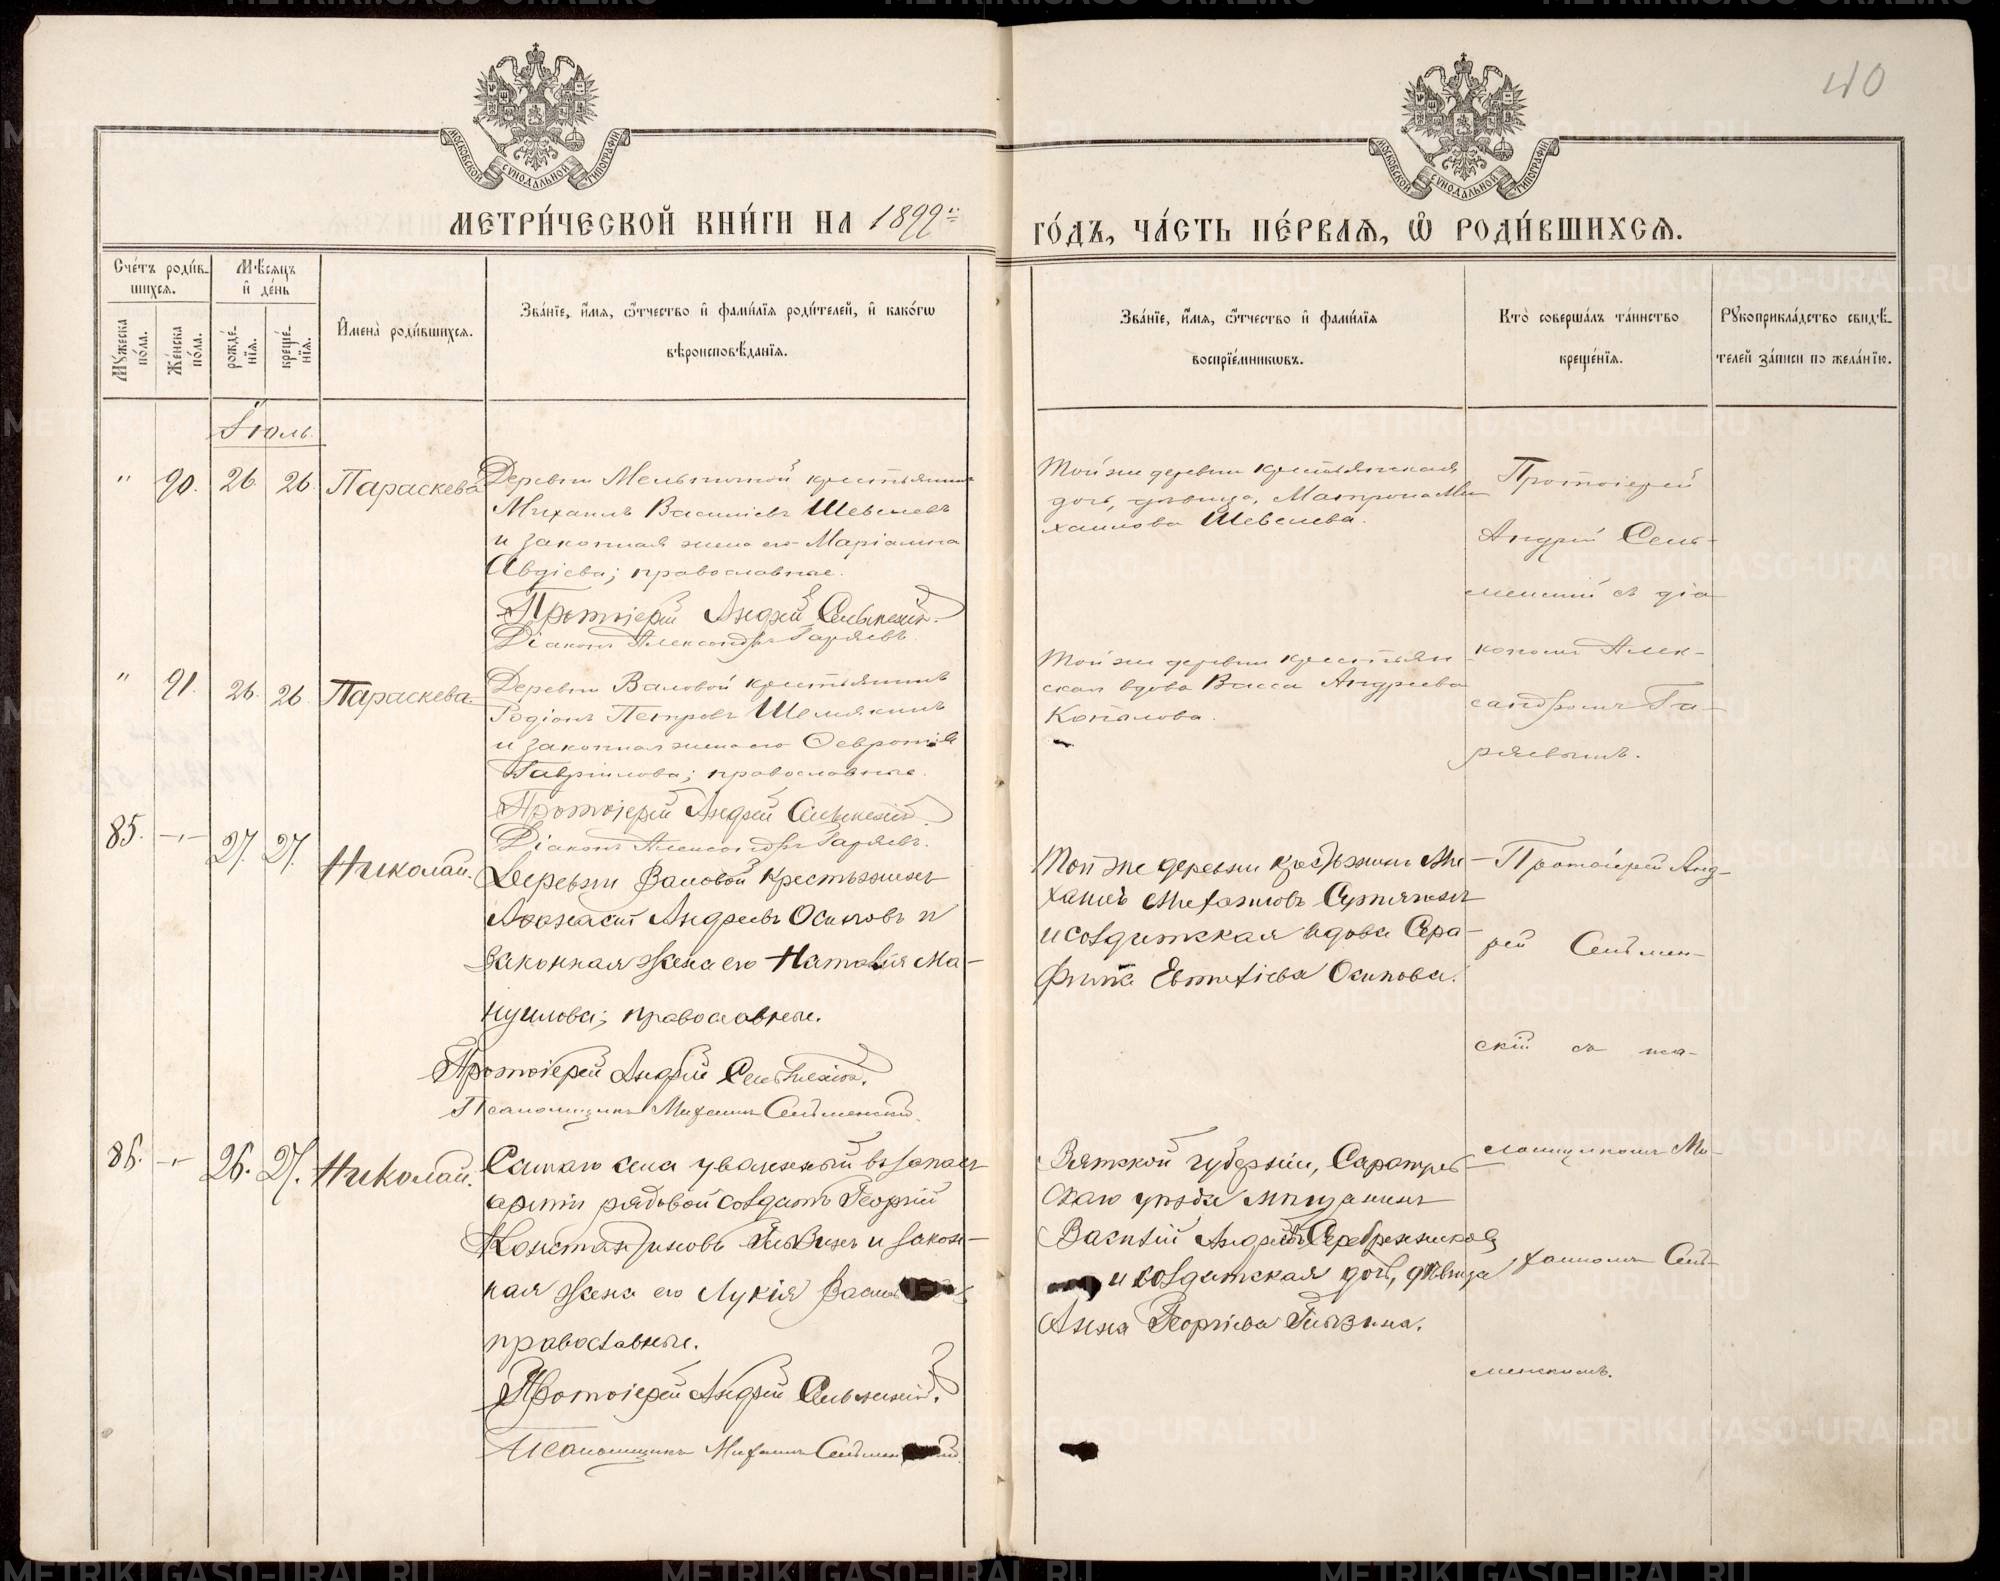 40
МОСКОВСКОЙ СѴНОДАЛЬНОЙ ТИПОГРАФІИ
МОСКОВСКОЙ СѴНОДАЛЬНОЙ ТИПОГРАФІИ
МЕТРИ́ЧЕСКОЙ КНИ́ГИ НА 1899
ГО́ДЪ, ЧА́СТЬ ПЕ́РВАѦ, Ѡ҆ РОДИ́ВШИХСѦ.
Сче́тъ роди́в-
шихсѧ.
Мѣ́сѧцъ
и҆ де́нь
Мꙋ́жеска
по́ла.
Же́нска
по́ла.
рожде́-
нїѧ.
креще́-
нїѧ.
И҆мена̀ роди́вшихсѧ.
Зва́нїе, и҆́мѧ, ѻ҆́тчество и҆ фами́лїѧ роди́телей, и҆ како́гѡ
вѣроисповѣ́данїѧ.
Зва́нїе, и҆́мѧ, ѻ҆́тчество и҆ фами́лїѧ
воспрїе́мникѡвъ.
Кто̀ соверша́лъ та́инство
креще́нїѧ.
Рꙋкоприкла́дство свидѣ́-
телей за́писи по жела́нїю.
Іюль.
" 90. 26. 26. Параскева
Деревни Мельничной крестьянинъ
Михаилъ Васильевъ Шевелевъ
и законная жена его Маріамна
Авдіева; православные.
Протоіерей Андрей Сельменскій.
Діаконъ Александръ Гаряевъ.
Той же деревни крестьянская
дочь, дѣвица, Матрона Ми
хаилова Шевелева.
Протоіерей
Андрей Сель-
менскій съ діа
кономъ Алек-
сандромъ Га-
ряевымъ.
" 91. 26. 26. Параскева.
Деревни Валовой крестьянинъ
Родіонъ Петровъ Шемякинъ
и законная жена его
Гаврилова; православные.
Протоіерей Андрей Сельменскій.
Діаконъ Александръ Гаряевъ.
Той же деревни крестьян
ская вдова Васса Андреева
Копалова.
85. 27. 27. Николай.
Деревни Валовой крестьянинъ
Аѳанасій Андреевъ Осиповъ и
законная жена его Наталія Ма-
нуилова; православные.
Протоіерей Андрей Сельменскій.
Псаломщикъ Михаилъ Сельменскій.
Той же деревни крестьянинъ Ми-
хаилъ
и солдатская вдова Сера-
фима Евтихіева Осипова.
Протоіерей Анд-
рей Сельмен-
скій съ пса-
ломщикомъ Ми-
хаиломъ Сель-
менскимъ.
86. 26. 27. Николай.
Самаго села уволенный въ запасъ
арміи рядовой солдатъ Георгій
Константиновъ и закон-
ная жена его Лукія
православные.
Протоіерей Андрей Сельменскій.
Псаломщикъ Михаилъ Сельменскій.
Вятской губерніи, Сарапуль-
скаго уѣзда мѣщанинъ
Василій Андреевъ Серебренниковъ
и солдатская дочь, дѣвица
Анна Георгіева